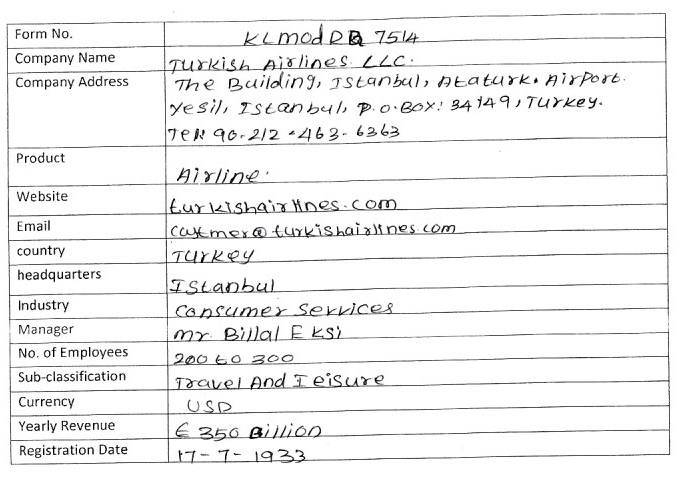 Form No. KLmodRB 7514
Company Name Turkish Airlines LLC.
Company Address The Building, Istanbul, Ataturk. Airport.
Yesil, Istanbul, P.O.Box: 34149, Turkey.
Tel: 90-212-463-6363
Product Airline.
Website turkishairlines.com
Email custmer@turkishairlines.com
country Turkey
headquarters Istanbul
Industry Consumer Services
Manager mr. Billal Eksi
No. of Employees 200 to 300
Sub-classification Travel And Leisure
Currency USD
Yearly Revenue € 350 Billion
Registration Date 17-7-1933